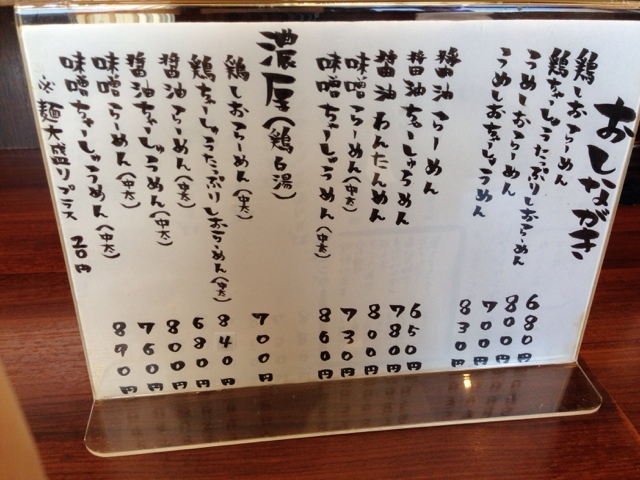 おしながき
鶏しおらーめん 680円
鶏ちゃーしゅうたっぷりしおらーめん 800円
うめしおらーめん 700円
うめしおちゃーしゅうめん 830円
醤油らーめん 650円
醤油ちゃーしゅうめん 780円
醤油わんたんめん 800円
味噌らーめん(中太) 730円
味噌ちゃーしゅうめん(中太) 860円
濃厚(鶏白湯)
鶏しおらーめん(中太) 700円
鶏ちゃーしゅうたっぷりしおらーめん(中太) 840円
醤油らーめん(中太) 680円
醤油ちゃーしゅうめん(中太) 800円
味噌らーめん(中太) 760円
味噌ちゃーしゅうめん(中太) 890円
※麺大盛りプラス 20円